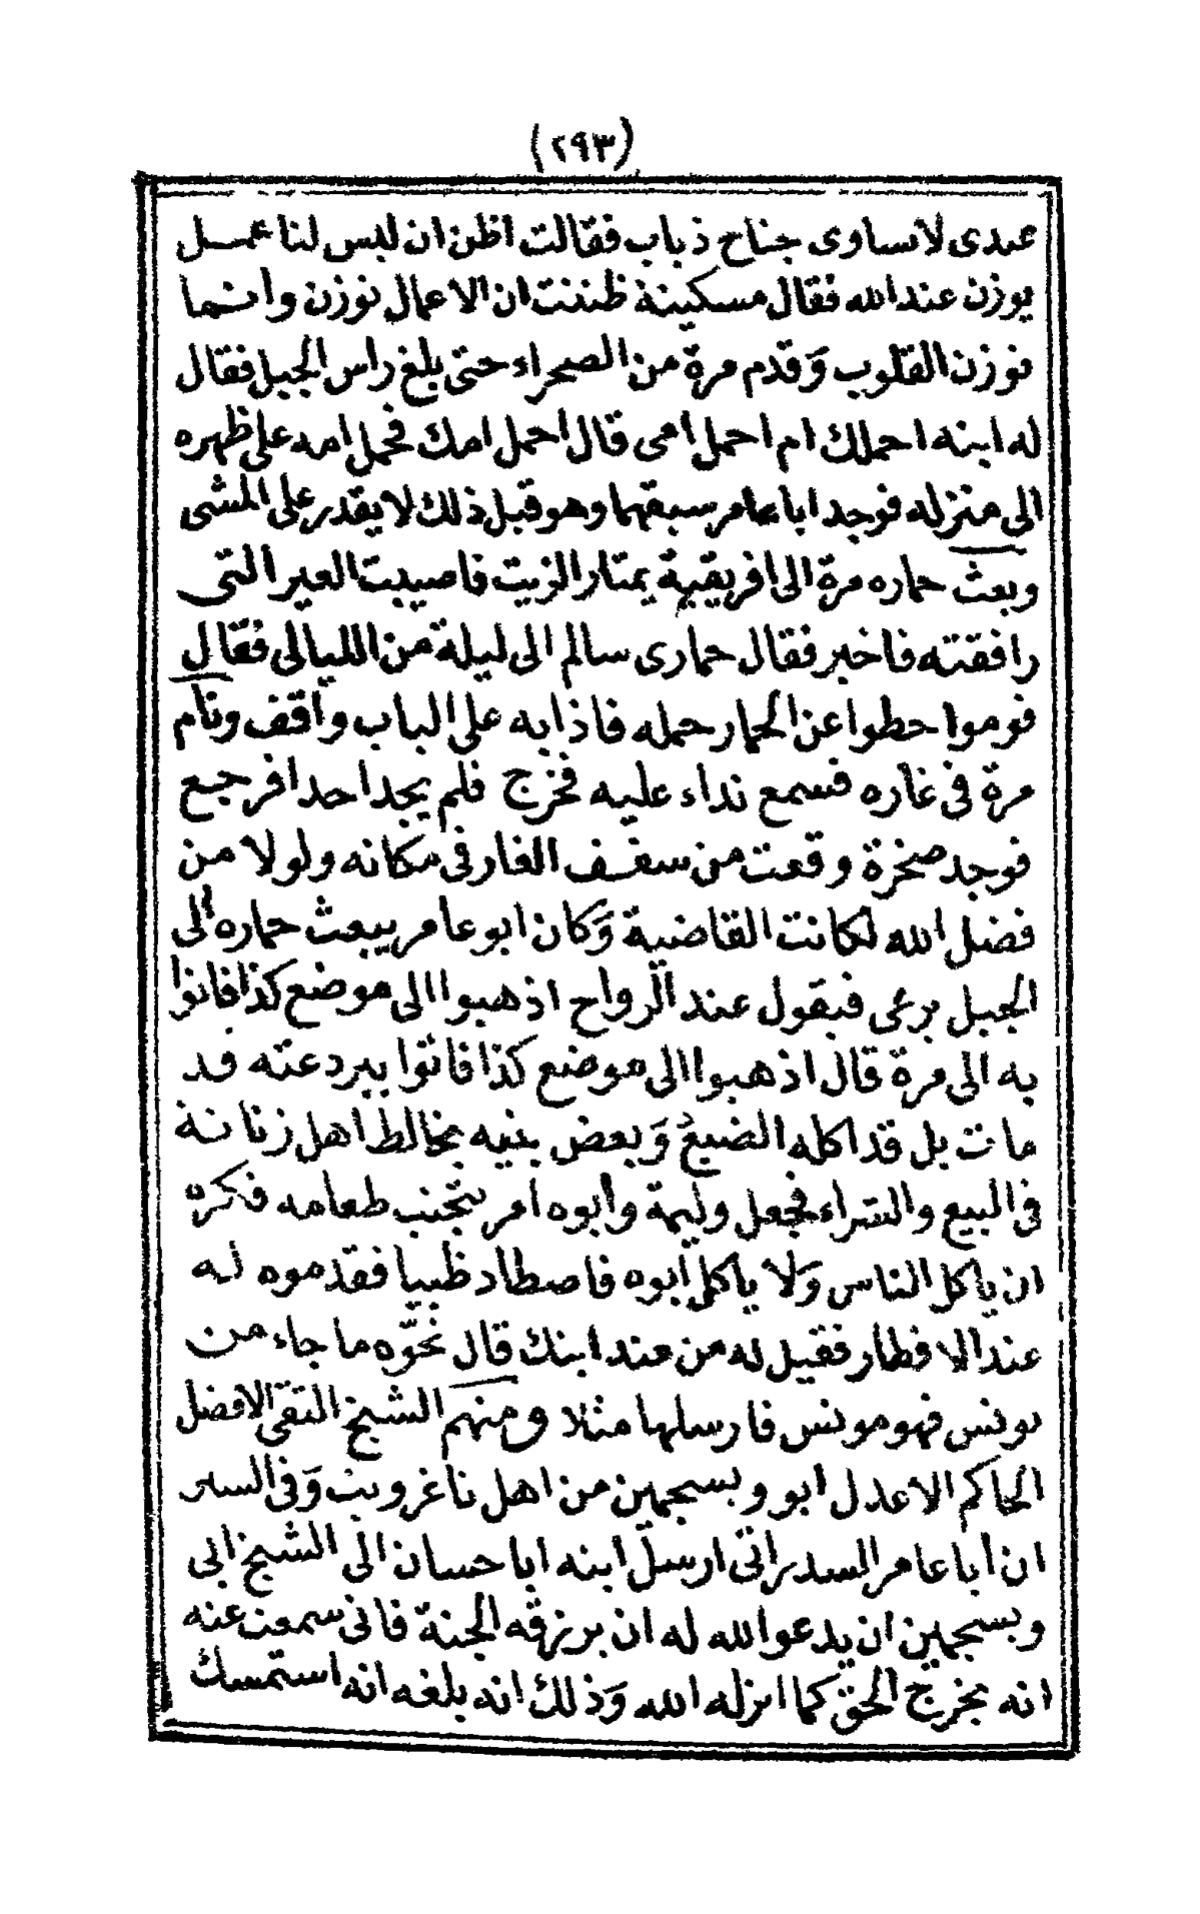 (٢٩٣)
عبدى لا تساوى جناح ذباب فقالت اظن ان ليس لنا عمل
يوزن عند الله فقال مسكينة ظننت ان الاعمال توزن وانما
توزن القلوب وقدم مرة من الصحراء حتى بلغ راس الجبل فقال
له ابنه احملك ام احمل امى قال احمل امك فحمل امه على ظهره
الى منزله فوجد ابا عامر سبقهما وهو قبل ذلك لا يقدر على المشى
وبعث حماره مرة الى افريقية يمتار الزيت فاصيبت العير التى
رافقته فاخبر فقال حمارى سالم الى ليلة من الليالى فقال
قوموا حطوا عن الحمار حمله فاذا به على الباب واقف ونام
مرة فى غاره فسمع نداء عليه فخرج فلم يجد احدا فرجع
فوجد صخرة وقعت من سقف الغار فى مكانه ولولا من
فضل الله لكانت القاضية وكان ابو عامر يبعث حماره الى
الجبل يرعى فيقول عند الرواح اذهبوا الى موضع كذا فاتوا
به الى مرة قال اذهبوا الى موضع كذا فاتوا ببردعته قد
مات بل قد اكله الضبع وبعض بنيه يخالط اهل زناتة
فى البيع والشراء فجعل وليمة وأبوه امر بتجنب طعامه فكره
ان ياكل الناس ولا ياكل أبوه فاصطاد ظبيا فقدموه له
عند الافطار فقيل له من عند ابنك قال نحّوه ما جاء من
يونس فهو مونس فارسلها مثلا ومنهم الشيخ التقى الافضل
الحاكم الاعدل أبو ويسجمين من اهل تاغرويت وفى السير
ان أبا عامر السدراتى ارسل ابنه ابا حسان الى الشيخ ابى
ويسجمين ان يدعو الله له ان يرزقه الجنة فانى سمعت عنه
انه يخرج الحق كما انزله الله وذلك انه بلغه انه استمسك